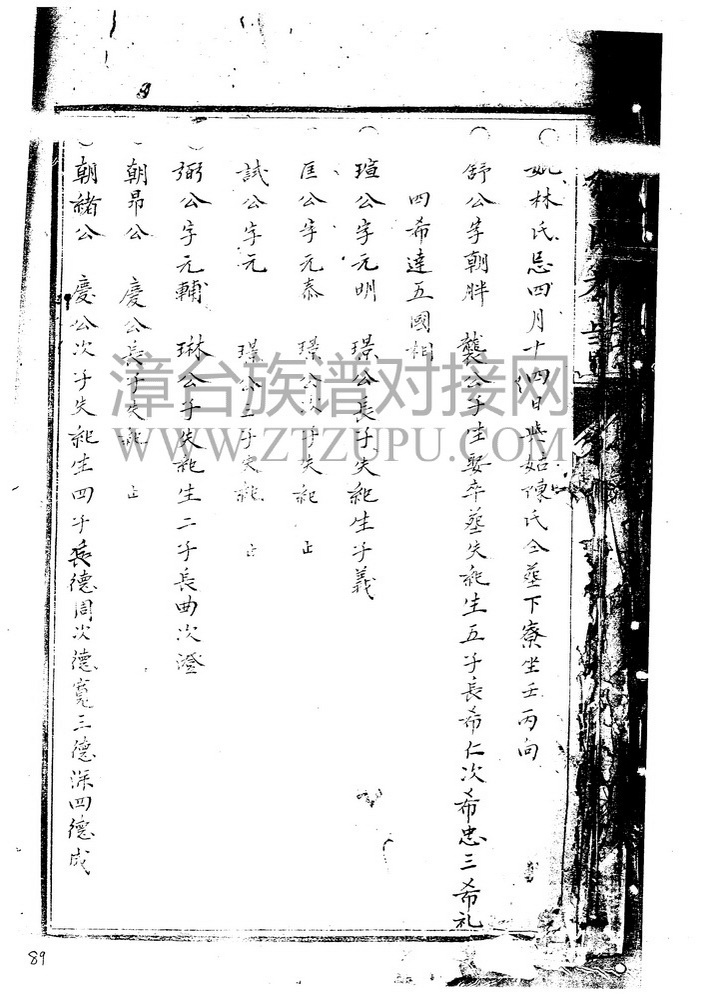 妣林氏忌四月十四日與姑陳氏仝塟下寮坐壬丙向
舒公字朝胖 龔公子生娶卒塟失紀生五子長希仁次希忠三希礼
四希達五國相
瑄公字元明 璟公長子失紀生子義
匡公字元泰 璟公次子失紀 止
試公字元 璟公三子失紀 止
弼公字元輔 琳公子失紀生二子長曲次澄
朝昂公 慶公長子失紀 止
朝緒公 慶公次子失紀生四子長德周次德寬三德深四德成
漳台族谱对接网
WWW.ZTZUPU.COM
89